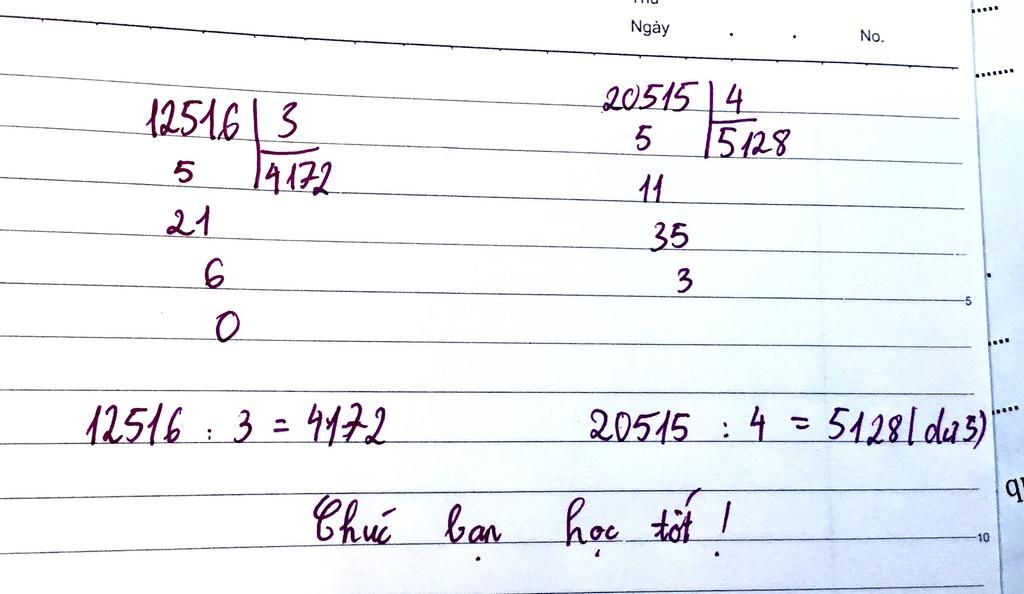 Ngày . . No.
12516 3 20515 4
5 4172 5 5128
21 11
6 35
0 3
5
12516 : 3 = 4172 20515 : 4 = 5128 (dư 3)
Chúc bạn học tốt !
10